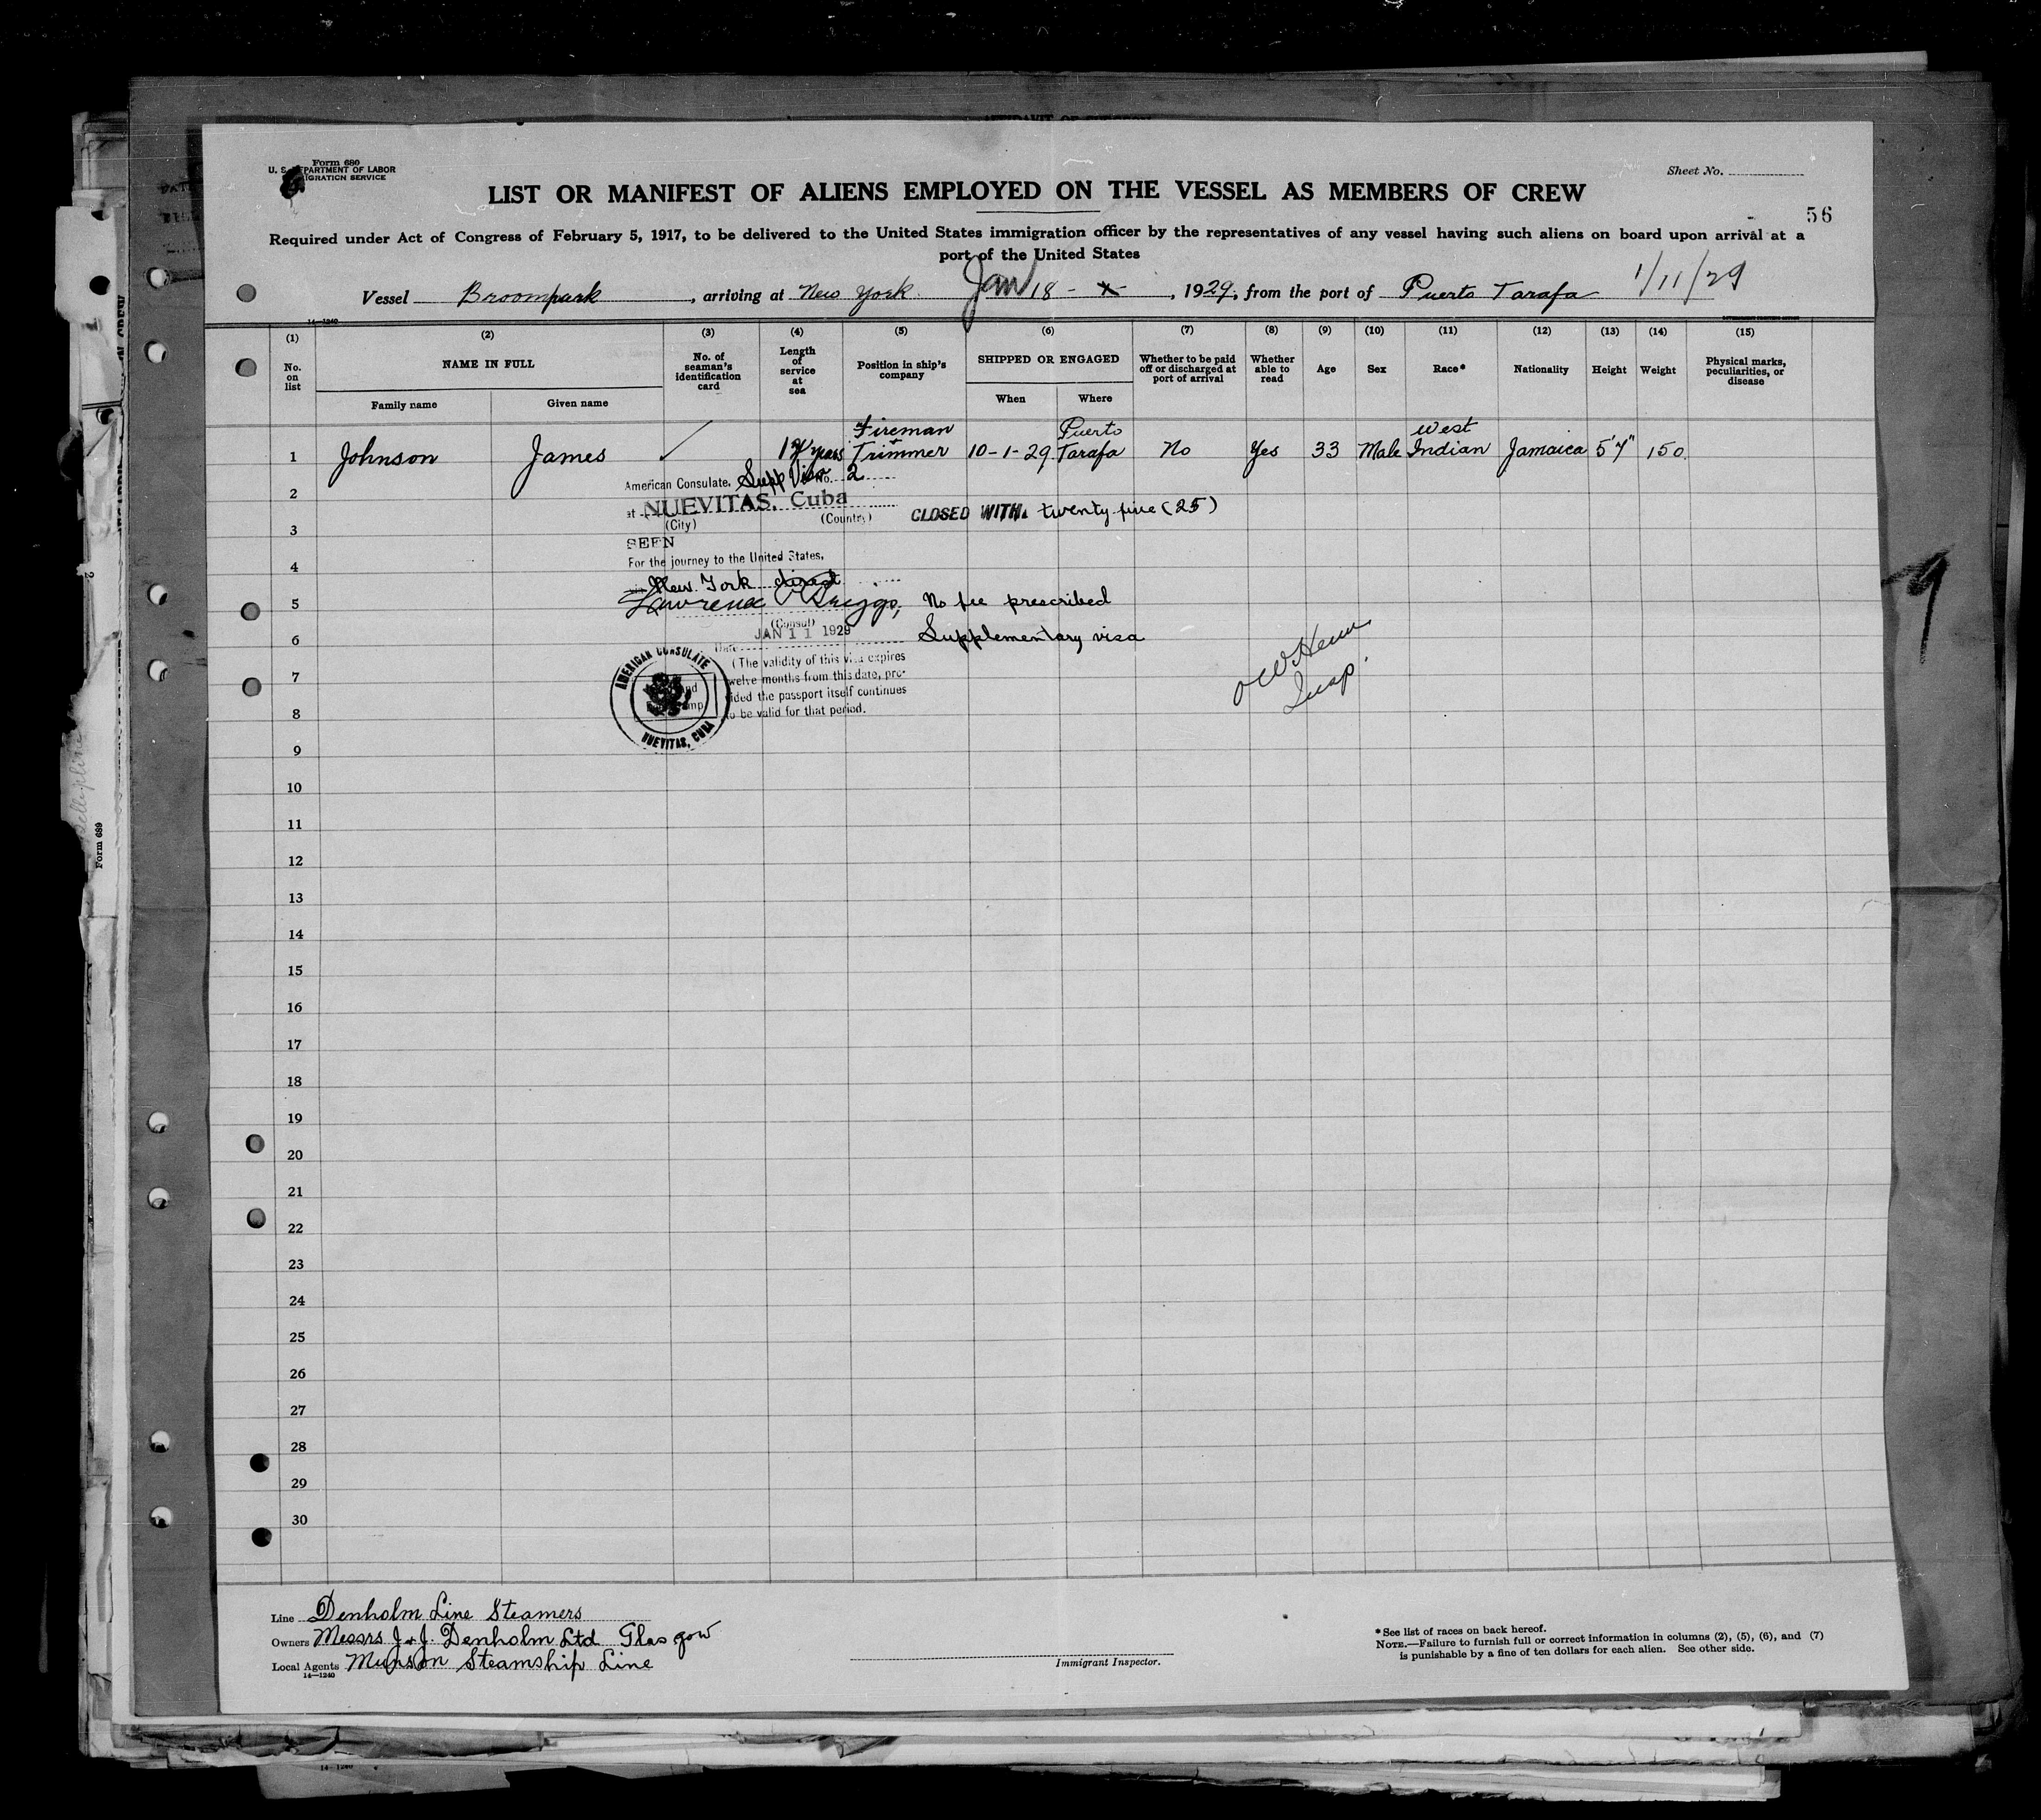 Form 680
U. S. DEPARTMENT OF LABOR
IMMIGRATION SERVICE
Sheet No.
LIST OR MANIFEST OF ALIENS EMPLOYED ON THE VESSEL AS MEMBERS OF CREW
56
Required under Act of Congress of February 5, 1917, to be delivered to the United States immigration officer by the representatives of any vessel having such aliens on board upon arrival at a
port of the United States
Vessel Broompark, arriving at New York. Jan 18 - x, 1929, from the port of Puerto Tarafa 1/11/29
14-1240
(1) (2) (3) (4) (5) (6) (7) (8) (9) (10) (11) (12) (13) (14) (15)
No. on list
NAME IN FULL
Family name
Given name
No. of seaman's identification card
Length of service at sea
Position in ship's company
SHIPPED OR ENGAGED
When
Where
Whether to be paid off or discharged at port of arrival
Whether able to read
Age
Sex
Race*
Nationality
Height
Weight
Physical marks, peculiarities, or disease
1 Johnson James years Fireman + Trimmer 10-1-29 Puerto Tarafa No Yes 33 Male West Indian Jamaica 5'7" 150
2
American Consulate. Supp Visa No. 2
at NUEVITAS, Cuba
(City) (Country)
CLOSED WITH twenty five (25)
3
SEEN
For the journey to the United States,
4
New York direct
5
Lawrence Briggs, No fee prescribed
(Consul)
6
JAN 11 1929 Supplementary visa
Date
(The validity of this visa expires
7
twelve months from this date, pro-
vided the passport itself continues
8
to be valid for that period.
AMERICAN CONSULATE
NUEVITAS, CUBA
Insp.
9
9
10
11
12
13
14
15
16
17
18
19
20
21
22
23
24
25
26
27
28
29
30
Line Denholm Line Steamers
Owners Messrs J. & J. Denholm Ltd Glasgow
Local Agents Munson Steamship Line
14-1240
Immigrant Inspector.
*See list of races on back hereof.
NOTE.—Failure to furnish full or correct information in columns (2), (5), (6), and (7)
is punishable by a fine of ten dollars for each alien. See other side.
Form 689
14-1240